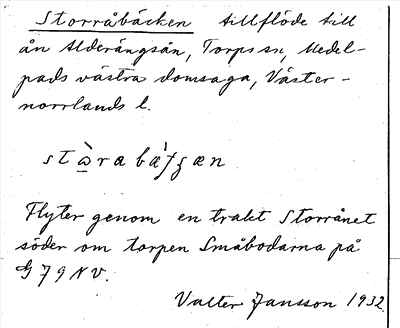 Storråbäcken tillflöde till
ån Alderängsån, Torps sn, Medel-
pads västra domsaga, Väster-
norrlands l.
Flyter genom en trakt Storrånet
söder om torpen Småbodarna på
G 79 NV.
Valter Jansson 1932